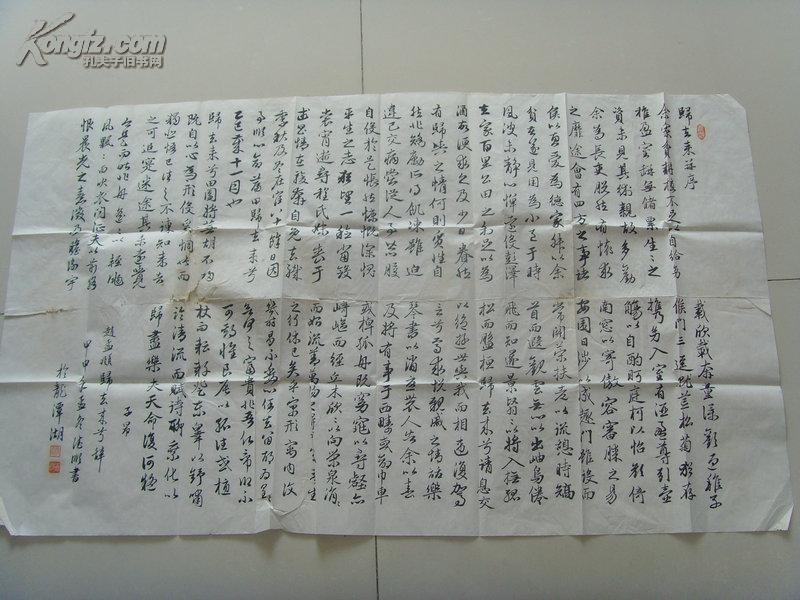 Kongfz.com
孔夫子旧书网
歸去来并序
余家貧耕植不足以自給幼
稚盈室缾無儲粟生生之
資未見其術親故多勸
余為長吏脫然有懷求
之靡途會有四方之事諸
侯以惠愛為德家叔以余
貧苦遂見用為小邑于時
風波未靜心憚遠役彭澤
去家百里公田之利足以為
酒故便求之及少日眷然
有歸與之情何則質性自
然非矯勵所得飢凍雖迫
違己交病嘗從人事皆口腹
自役於是悵然慷慨深愧
平生之志猶望一稔當斂
裳宵逝尋程氏妹喪于
武昌情在駿奔自免去職
仲秋及冬在官八十餘日因
事順心命篇曰歸去来兮
乙巳歲十一月也
歸去来兮田園將蕪胡不歸
既自以心為形役奚惆悵而
獨悲悟已往之不諫知来者
之可追寔迷途其未遠覺
今是而昨非舟遙遙以輕颺
風飄飄而吹衣問征夫以前路
恨晨光之熹微乃瞻衡宇
載欣載奔僮僕歡迎稚子
候門三逕就荒松菊猶存
攜幼入室有酒盈尊引壺
觴以自酌眄庭柯以怡顏倚
南窗以寄傲審容膝之易
安園日涉以成趣門雖設而
常關策扶老以流憩時矯
首而遐觀雲無心以出岫鳥倦
飛而知還景翳翳以將入撫孤
松而盤桓歸去来兮請息交
以絕游世與我而相遺復駕
言兮焉求悅親戚之情話樂
琴書以消憂農人告余以春
及將有事于西疇或命巾車
或棹孤舟既窈窕以尋壑亦
崎嶇而經丘木欣欣以向榮泉涓涓
而始流善萬物之得時感吾生
之行休已矣乎寓形宇内復
幾時曷不委心任去留胡為
乎何之富貴非吾願帝鄉不
可期懷良辰以孤往或植
杖而耘耔登東皋以舒嘯
臨清流而賦詩聊乘化以
歸盡樂夫天命復何疑
子昂
趙孟頫歸去来兮辭
甲申年孟冬書
於龍潭湖